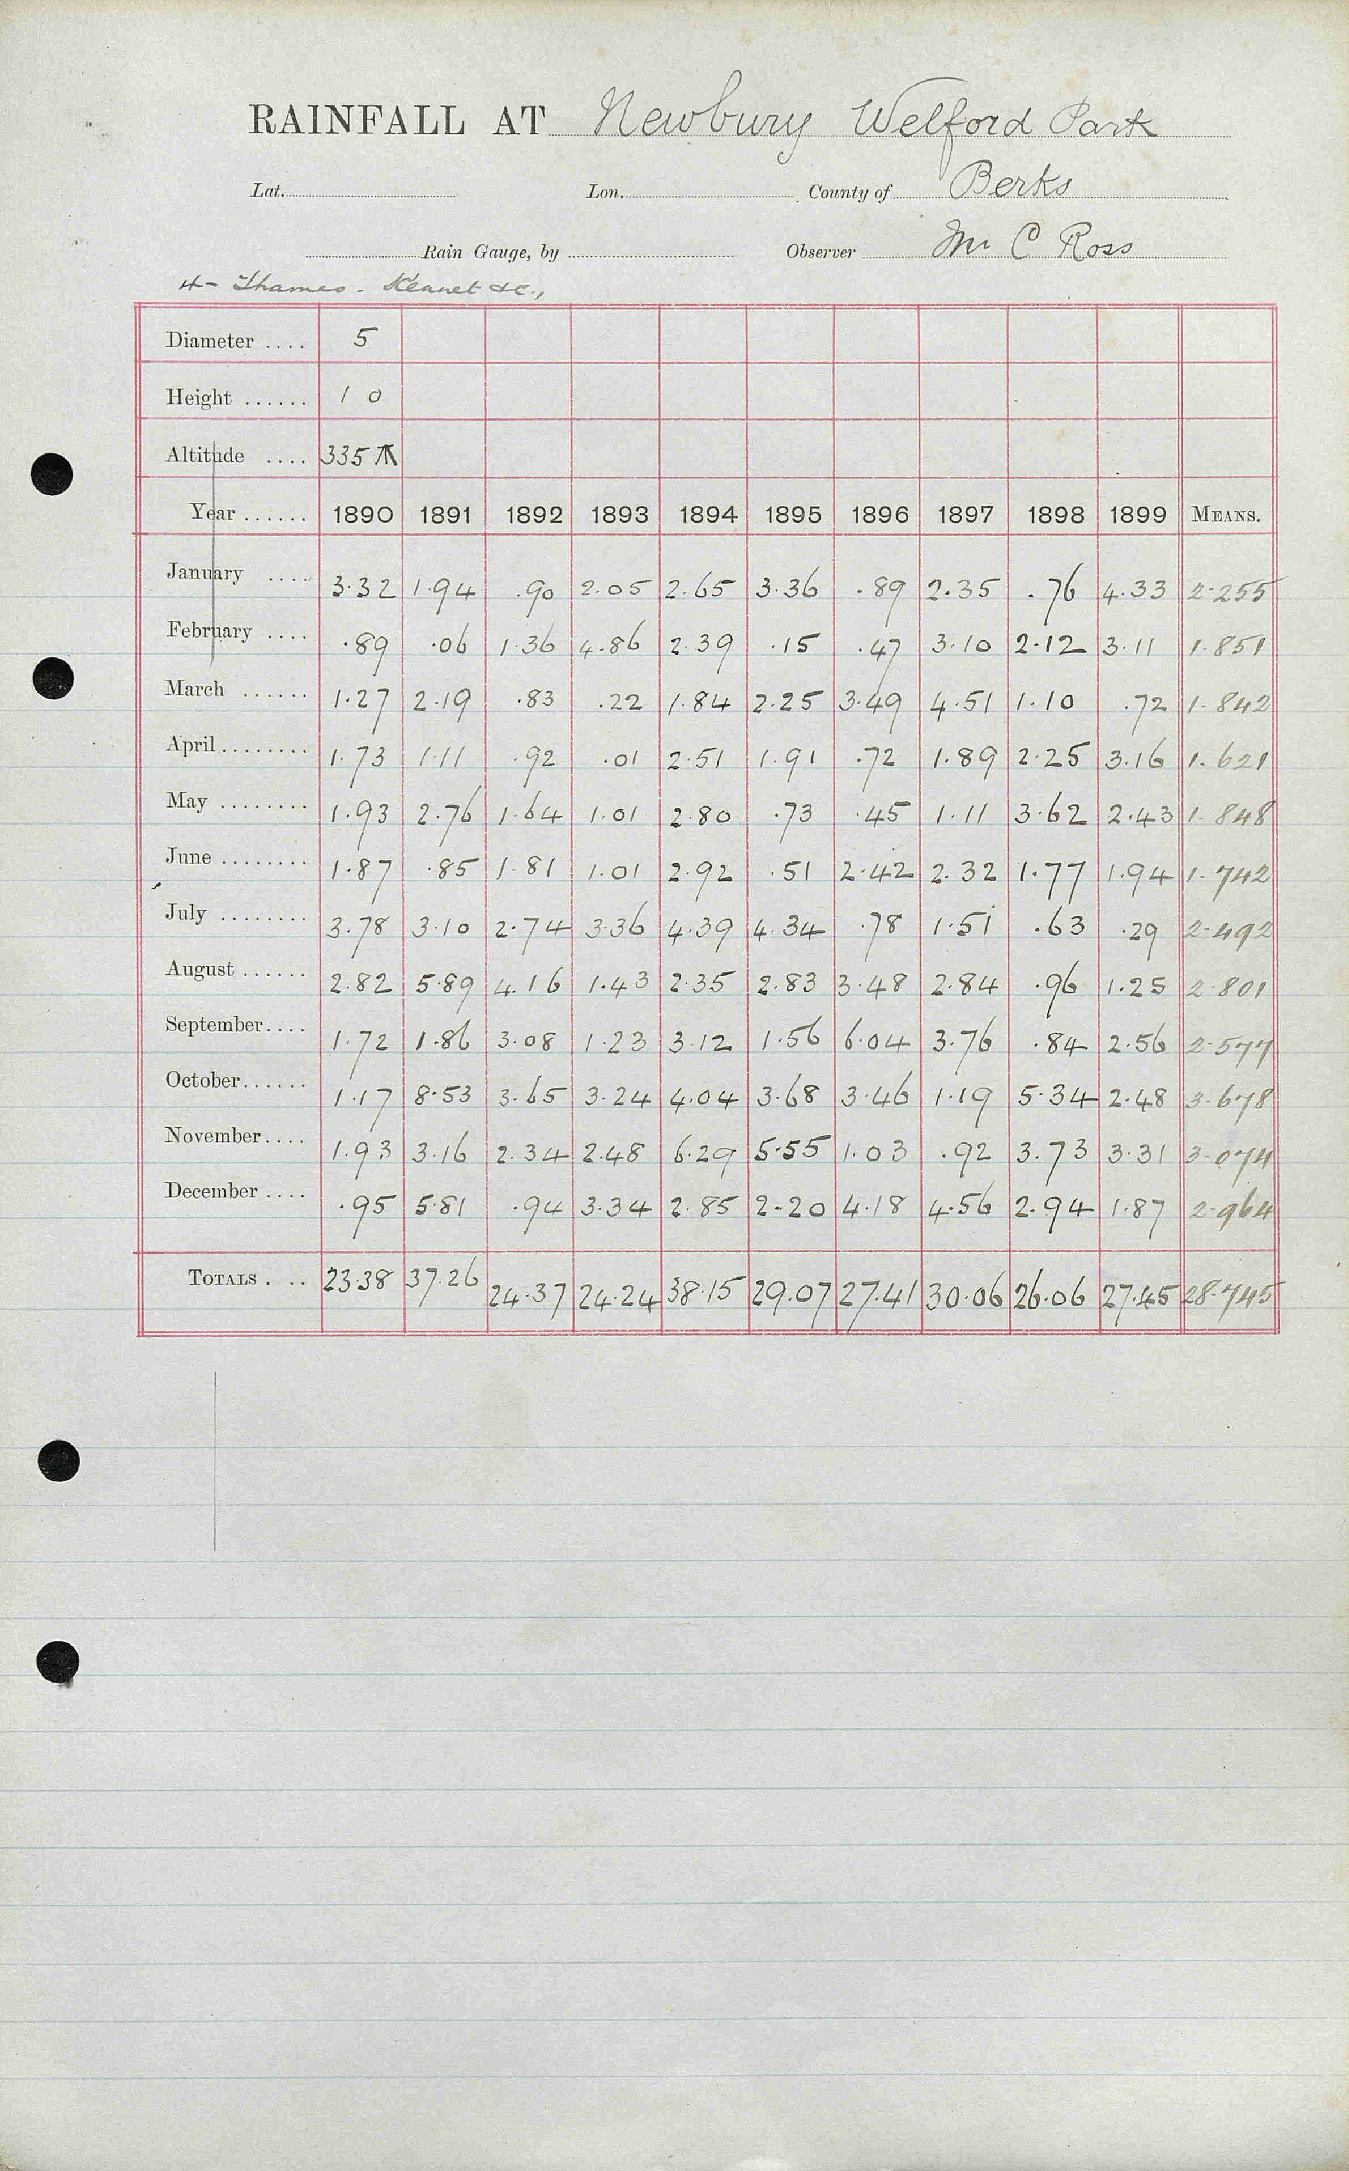 RAINFALL AT Newbury Welford Park
Lat. Lon. County of Berks
Rain Gauge, by Observer Mr C Ross
4- Thames. Kennet &c.,
Diameter .... 5
Height ...... 1 0
Altitude .... 335
Year ...... 1890 1891 1892 1893 1894 1895 1896 1897 1898 1899 MEANS.
January .... 3.32 1.94 .90 2.05 2.65 3.36 .89 2.35 .76 4.33 2.255
February .... .89 .06 1.36 4.86 2.39 .15 .47 3.10 2.12 3.11 1.851
March ...... 1.27 2.19 .83 .22 1.84 2.25 3.49 4.51 1.10 .72 1.842
April ........ 1.73 1.11 .92 .01 2.51 1.91 .72 1.89 2.25 3.16 1.621
May ........ 1.93 2.76 1.64 1.01 2.80 .73 .45 1.11 3.62 2.43 1.848
June ........ 1.87 .85 1.81 1.01 2.92 .51 2.42 2.32 1.77 1.94 1.742
July ........ 3.78 3.10 2.74 3.36 4.39 4.34 .78 1.51 .63 .29 2.492
August ...... 2.82 5.89 4.16 1.43 2.35 2.83 3.48 2.84 .96 1.25 2.801
September .... 1.72 1.86 3.08 1.23 3.12 1.56 6.04 3.76 .84 2.56 2.577
October ...... 1.17 8.53 3.65 3.24 4.04 3.68 3.46 1.19 5.34 2.48 3.678
November .... 1.93 3.16 2.34 2.48 6.29 5.55 1.03 .92 3.73 3.31 3.074
December .... .95 5.81 .94 3.34 2.85 2.20 4.18 4.56 2.94 1.87 2.964
TOTALS . .. 23.38 37.26 24.37 24.24 38.15 29.07 27.41 30.06 26.06 27.45 28.745